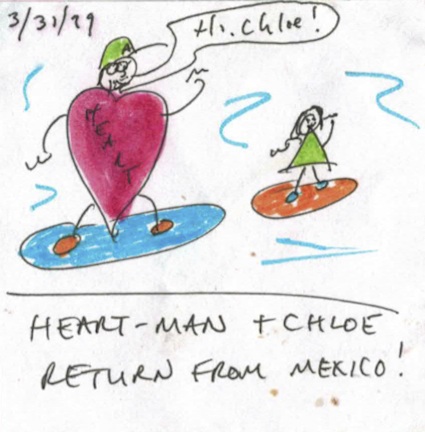 3/31/99
Hi, Chloe!
HEART
HEART-MAN + CHLOE
RETURN FROM MEXICO!